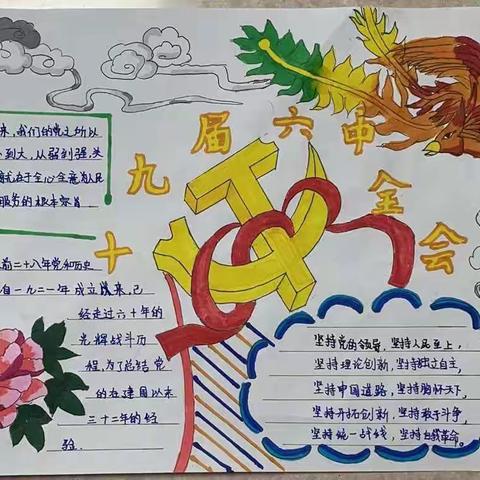 十九届六中全会
来,我们的党之所以
小到大,从弱到强,关
就在于全心全意为人民
服务的根本宗旨
前二十八年党和历史
自一九二一年成立以来,已
经走过六十年的
光辉战斗历
程,为了总结党
的在建国以来
三十二年的经
验.
坚持党的领导,坚持人民至上,
坚持理论创新,坚持独立自主,
坚持中国道路,坚持胸怀天下,
坚持开拓创新,坚持敢于斗争,
坚持统一战线,坚持自我革命。